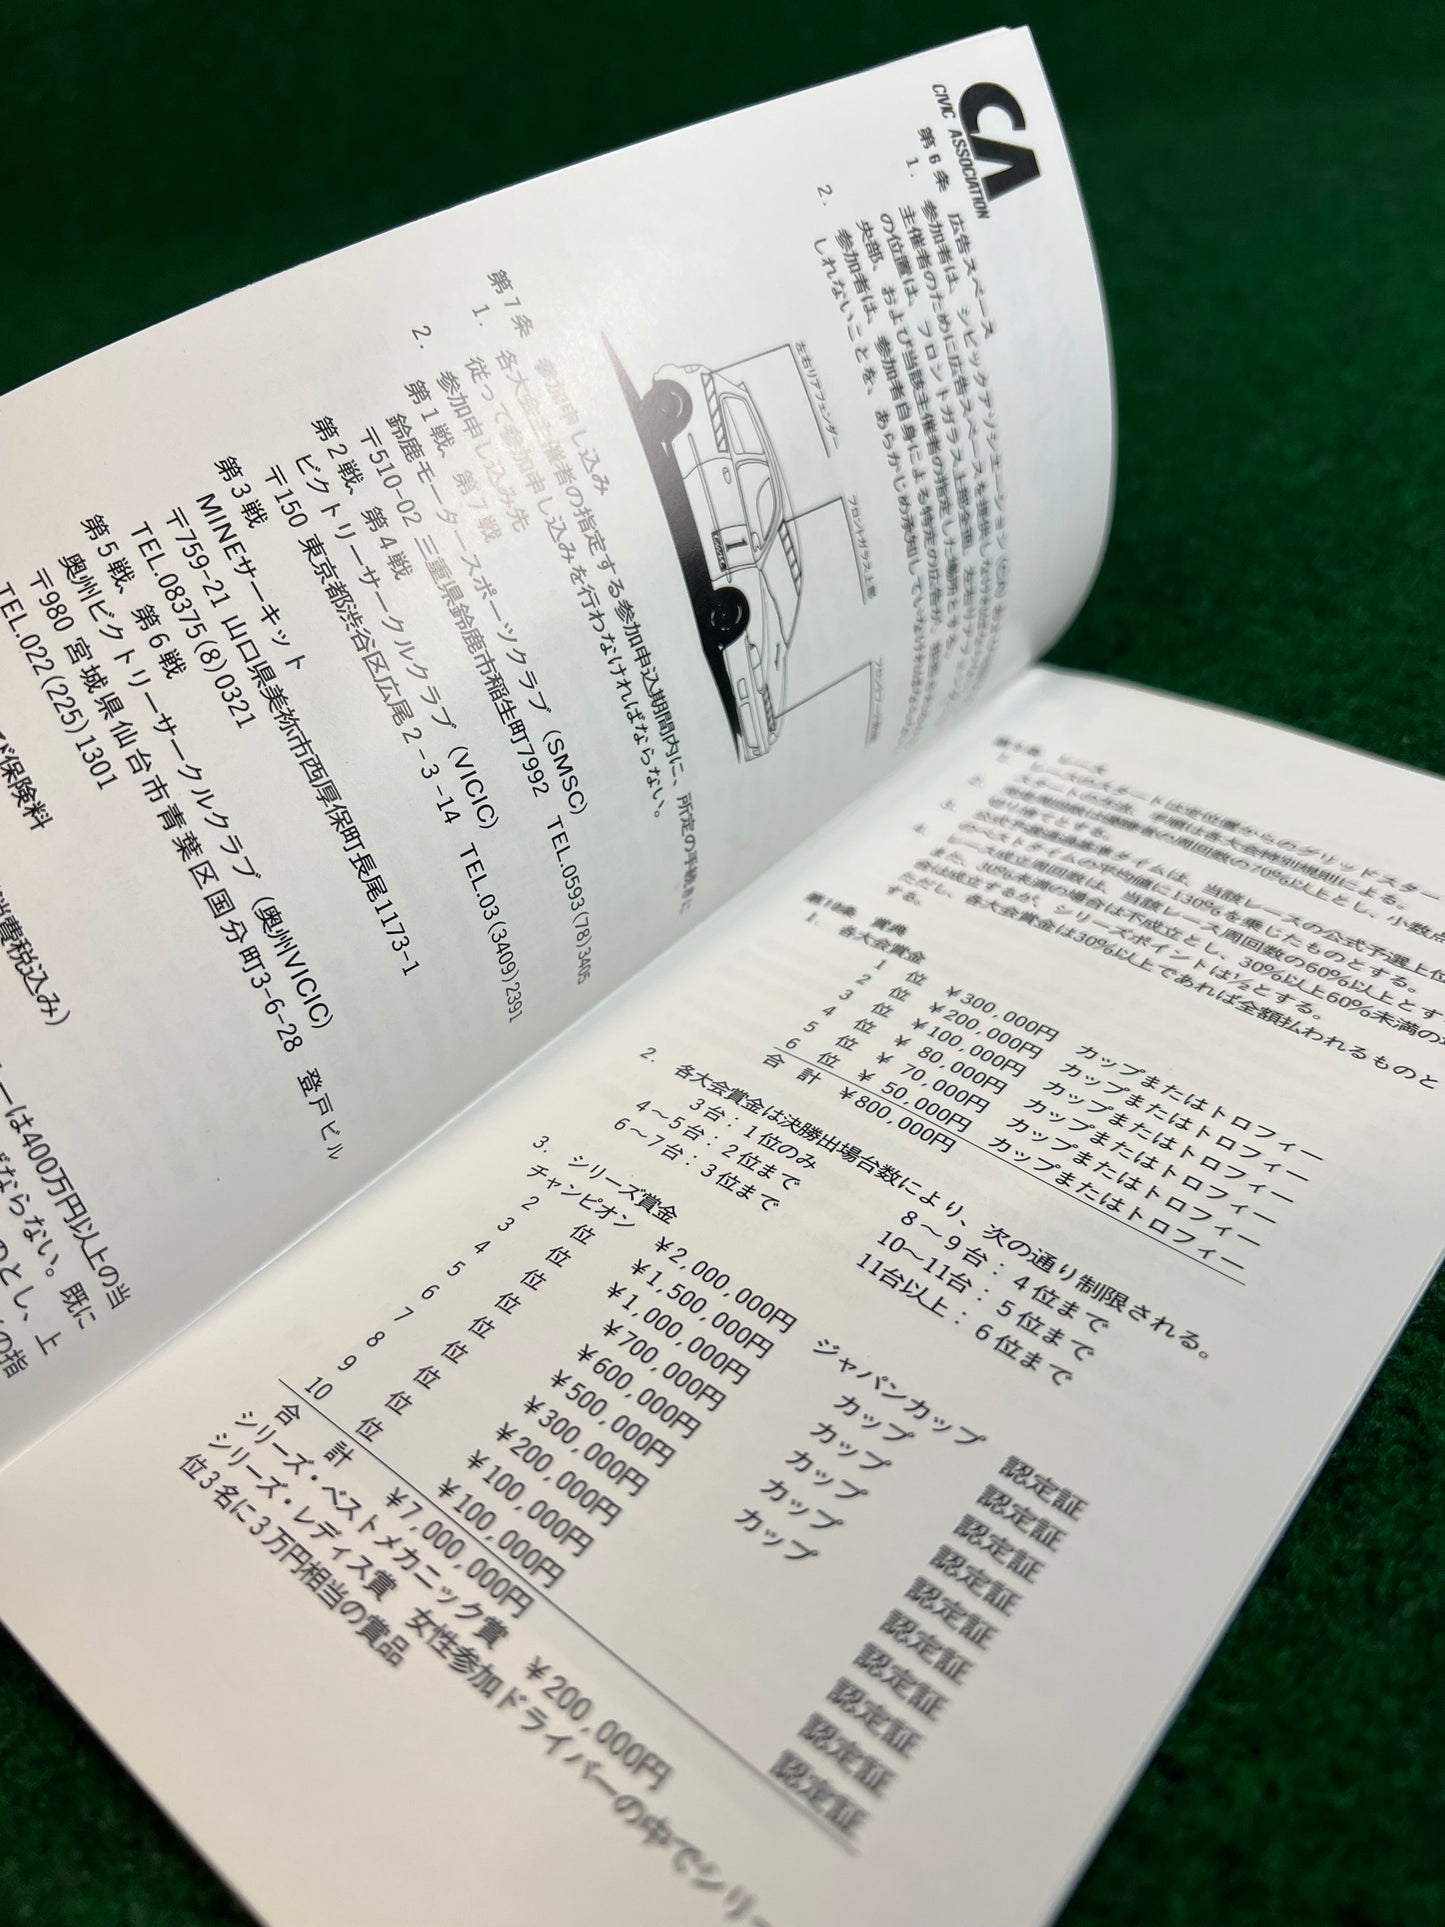 CA
CIVIC ASSOCIATION
第6条 広告スペース
1. 参加者は、シビックアソシエーション
主催者のために広告スペースを提供しなければならない
の位置は、フロントガラス上部全面、左右リアフェンダー
央部、および当該主催者の指定した場所とする。
2. 参加者は、参加者自身による特定の広告が、
しれないことを、あらかじめ承知していなければならない。
左右リアフェンダー
フロントガラス上部
1
第7条 参加申し込み
1. 各大会主催者の指定する参加申込期間内に、所定の手続きに
従って参加申し込みを行わなければならない。
2. 参加申し込み先
第1戦、第7戦
鈴鹿モータースポーツクラブ (SMSC)
〒510-02 三重県鈴鹿市稲生町7992 TEL.0593(78)3405
第2戦、第4戦
ビクトリーサークルクラブ (VICIC)
〒150 東京都渋谷区広尾2-3-14 TEL.03(3409)2391
第3戦
MINEサーキット
〒759-21 山口県美祢市西厚保町長尾1173-1
TEL.08375(8)0321
第5戦、第6戦
奥州ビクトリーサークルクラブ (奥州VICIC)
〒980 宮城県仙台市青葉区国分町3-6-28 登戸ビル
TEL.022(225)1301
保険料
消費税込み)
ーは400万円以上の当
ばならない。既に
のとし、上
の指
レース
レースのスタートは定位置からのグリッドスタート
スタートの方法、手順は各大会特別規則による。
完走周回数は優勝者の周回数の70%以上とし、小数点
切り捨てとする。
3. 公式予選通過基準タイムは、当該レースの公式予選上位
のベストタイムの平均値に130%を乗じたものとする。
4. レース成立周回数は、当該レース周回数の60%以上とす
また、30%未満の場合は不成立とし、30%以上60%未満の
合は成立するが、シリーズポイントは½とする。
ただし、各大会賞金は30%以上であれば全額払われるものと
する。
第10条 賞典
1. 各大会賞金
1 位 ¥300,000円 カップまたはトロフィー
2 位 ¥200,000円 カップまたはトロフィー
3 位 ¥100,000円 カップまたはトロフィー
4 位 ¥ 80,000円 カップまたはトロフィー
5 位 ¥ 70,000円 カップまたはトロフィー
6 位 ¥ 50,000円 カップまたはトロフィー
合 計 ¥800,000円
2. 各大会賞金は決勝出場台数により、次の通り制限される。
3台:1位のみ 8〜9台:4位まで
4〜5台:2位まで 10〜11台:5位まで
6〜7台:3位まで 11台以上:6位まで
3. シリーズ賞金
チャンピオン ¥2,000,000円 ジャパンカップ 認定証
2 位 ¥1,500,000円 カップ 認定証
3 位 ¥1,000,000円 カップ 認定証
4 位 ¥700,000円 カップ 認定証
5 位 ¥600,000円 カップ 認定証
6 位 ¥500,000円 カップ 認定証
7 位 ¥300,000円 認定証
8 位 ¥200,000円 認定証
9 位 ¥100,000円 認定証
10 位 ¥100,000円 認定証
合 計 ¥7,000,000円
シリーズ・ベストメカニック賞 ¥200,000円
シリーズ・レディス賞 女性参加ドライバーの中でシリー
位3名に3万円相当の賞品